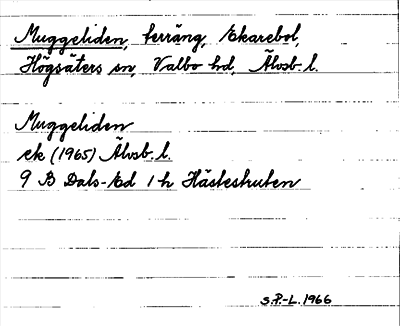 Muggeliden, terräng, Ekarebol,
Högsäters sn, Valbo hd, Älvsb. l.
Muggeliden
ek (1965) Älvsb. l.
9 B Dals-Ed 1 h Hästeskruten
S.P.-L. 1966